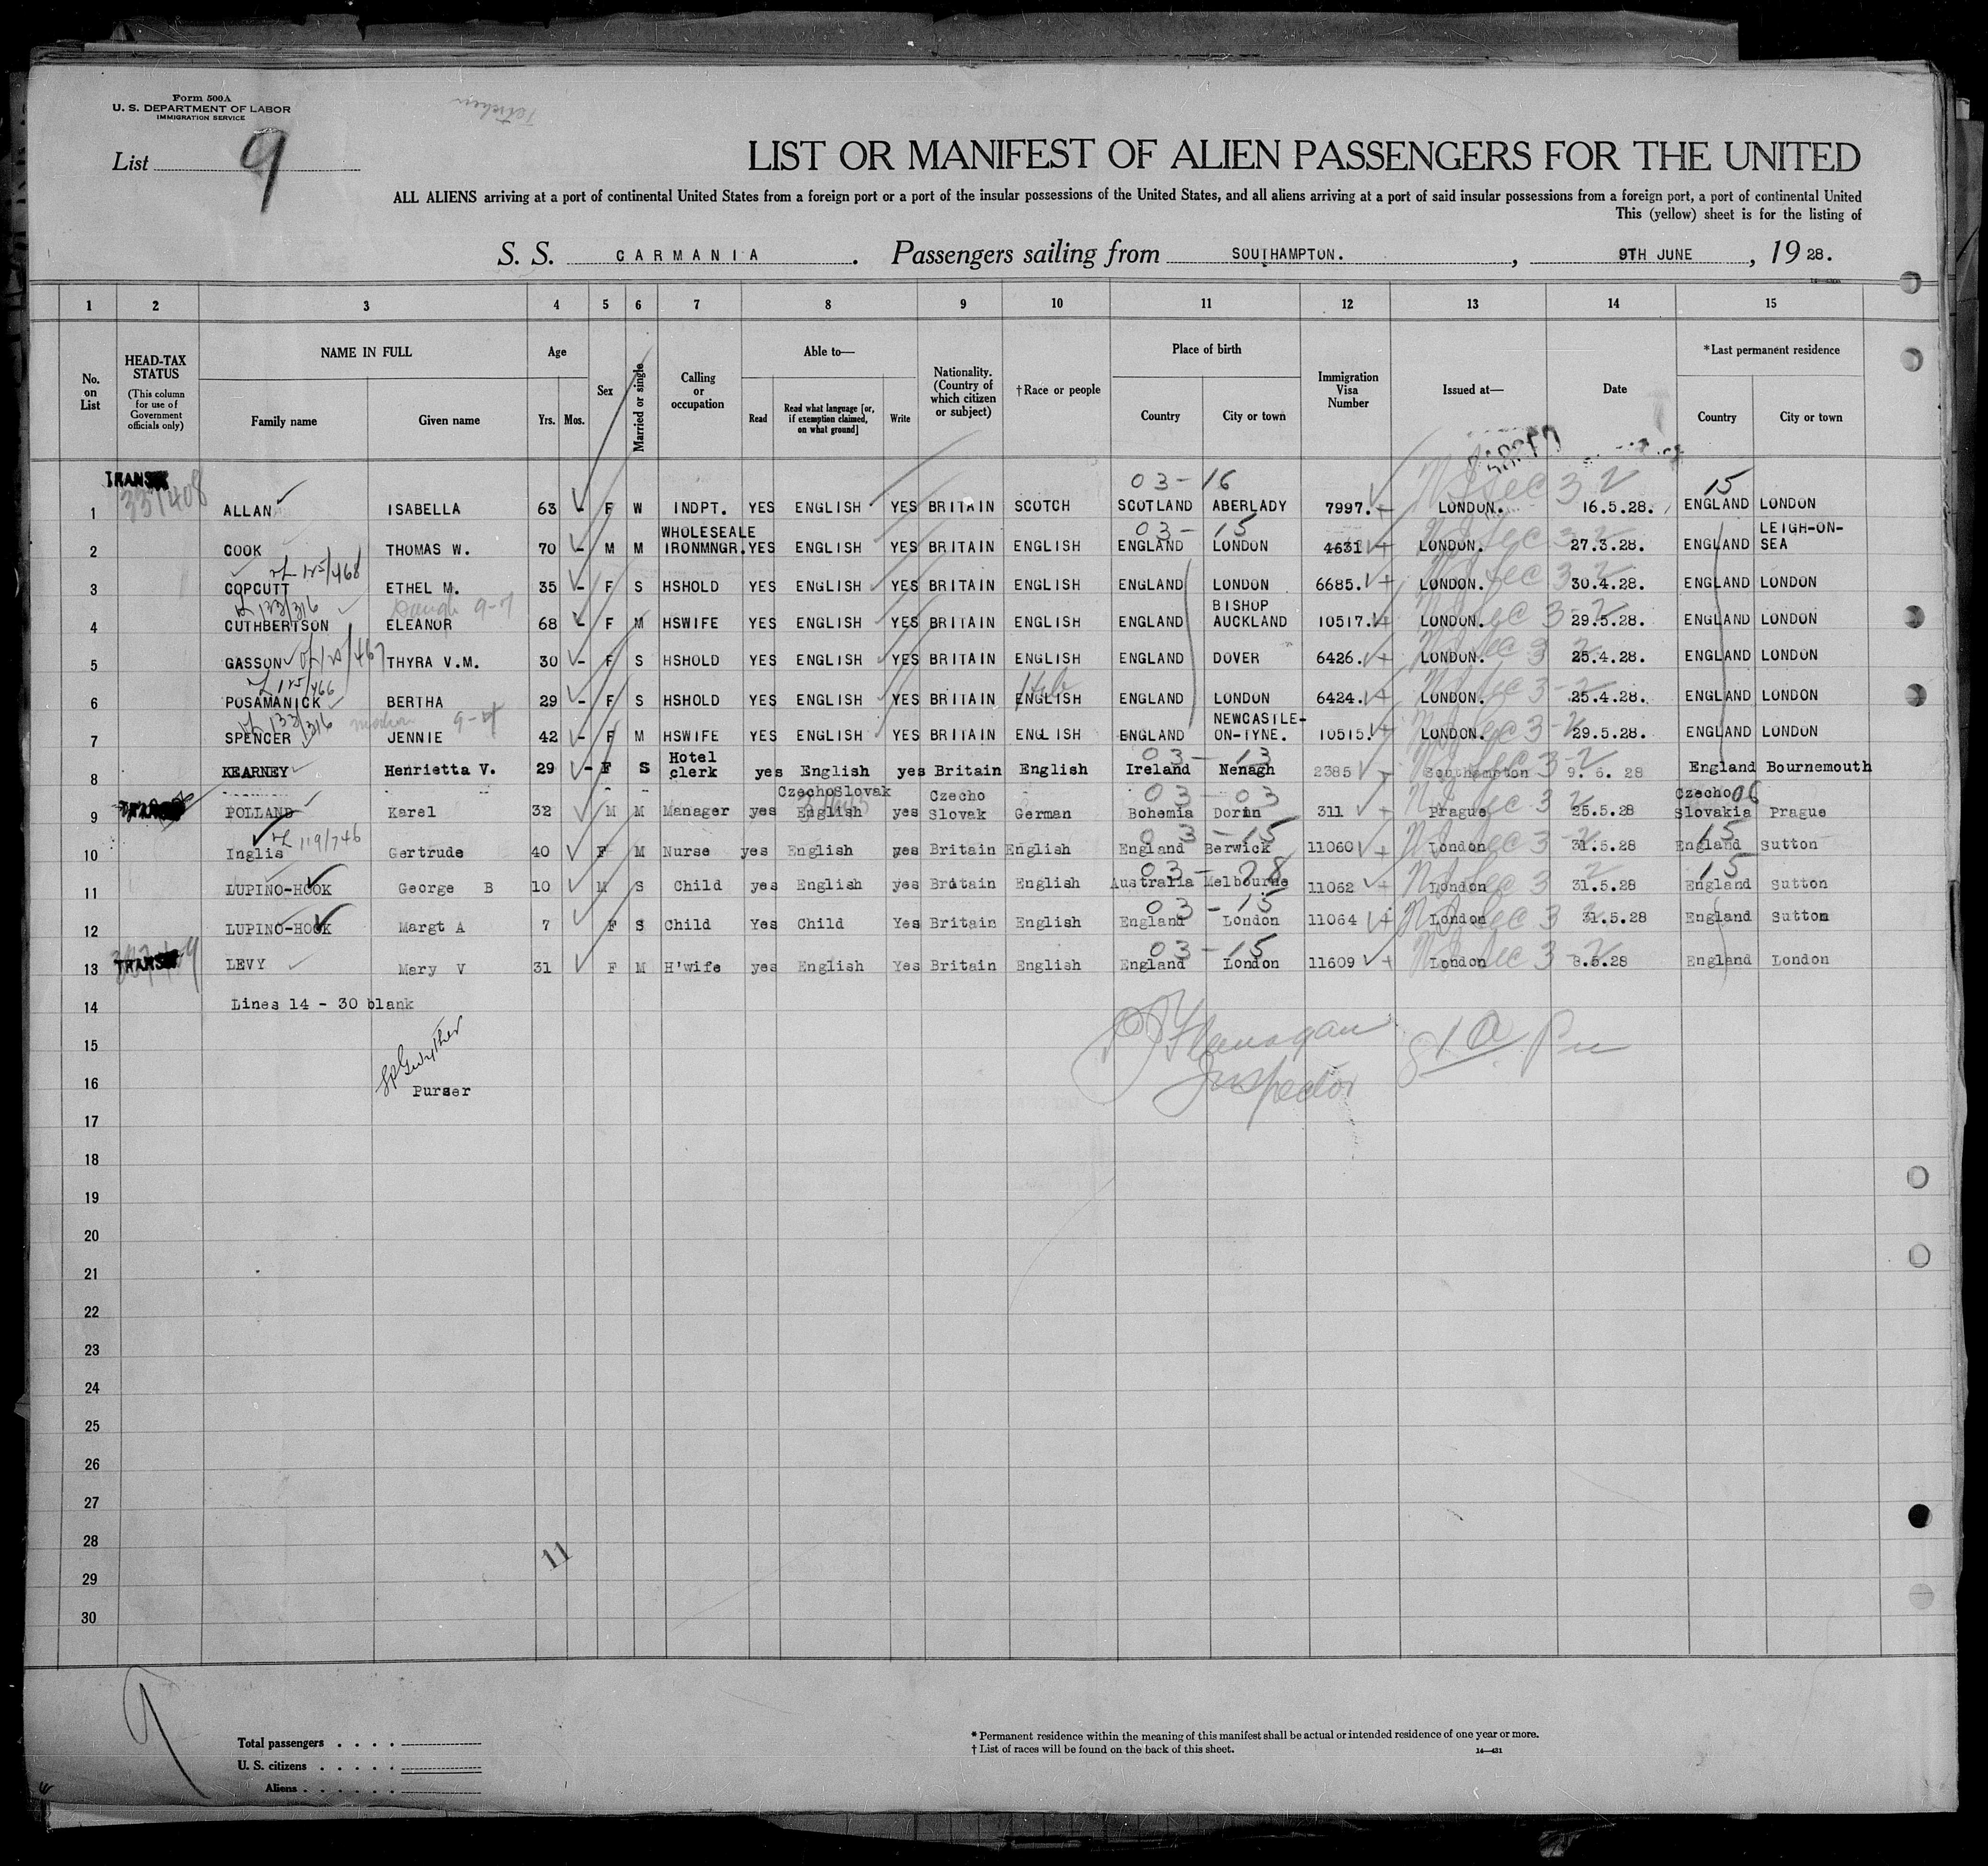 Form 500A
U. S. DEPARTMENT OF LABOR
IMMIGRATION SERVICE
List 9
LIST OR MANIFEST OF ALIEN PASSENGERS FOR THE UNITED
ALL ALIENS arriving at a port of continental United States from a foreign port or a port of the insular possessions of the United States, and all aliens arriving at a port of said insular possessions from a foreign port, a port of continental United
This (yellow) sheet is for the listing of
S. S. CARMANIA. Passengers sailing from SOUTHAMPTON. , 9TH JUNE , 19 28.
1 2 3 4 5 6 7 8 9 10 11 12 13 14 15
No. on List
HEAD-TAX STATUS
(This column for use of Government officials only)
NAME IN FULL
Family name Given name
Age
Yrs. Mos.
Sex
Married or single
Calling or occupation
Able to—
Read
Read what language [or, if exemption claimed, on what ground]
Write
Nationality. (Country of which citizen or subject)
†Race or people
Place of birth
Country City or town
Immigration Visa Number
Issued at—
Date
*Last permanent residence
Country City or town
03-16 15
1 TRANS 337408 ALLAN ISABELLA 63 - F W INDPT. YES ENGLISH YES BRITAIN SCOTCH SCOTLAND ABERLADY 7997. LONDON. 16.5.28. ENGLAND LONDON
03-15
2 COOK THOMAS W. 70 - M M WHOLESEALE IRONMNGR. YES ENGLISH YES BRITAIN ENGLISH ENGLAND LONDON 4631 LONDON. 27.3.28. ENGLAND LEIGH-ON-SEA
125/468
3 COPCUTT ETHEL M. 35 - F S HSHOLD YES ENGLISH YES BRITAIN ENGLISH ENGLAND LONDON 6685. LONDON. 30.4.28. ENGLAND LONDON
133/316 9-7
4 CUTHBERTSON ELEANOR 68 - F M HSWIFE YES ENGLISH YES BRITAIN ENGLISH ENGLAND BISHOP AUCKLAND 10517. LONDON. 29.5.28. ENGLAND LONDON
125/467
5 GASSON THYRA V.M. 30 - F S HSHOLD YES ENGLISH YES BRITAIN ENGLISH ENGLAND DOVER 6426. LONDON. 25.4.28. ENGLAND LONDON
125/466
6 POSAMANICK BERTHA 29 - F S HSHOLD YES ENGLISH YES BRITAIN ENGLISH Heb ENGLAND LONDON 6424. LONDON. 25.4.28. ENGLAND LONDON
133/316 9-4
7 SPENCER JENNIE 42 - F M HSWIFE YES ENGLISH YES BRITAIN ENGLISH ENGLAND NEWCASTLE-ON-TYNE. 10515. LONDON. 29.5.28. ENGLAND LONDON
03-13
8 KEARNEY Henrietta V. 29 - F S Hotel clerk yes English yes Britain English Ireland Nenagh 2385 Southampton 9. 6. 28 England Bournemouth
03-03 06
9 POLLAND Karel 32 M M Manager yes CzechoSlovak English yes Czecho Slovak German Bohemia 311 Prague 25.5.28 Czecho Slovakia Prague
119/746 03-15 15
10 Inglis Gertrude 40 F M Nurse yes English yes Britain English England Berwick 11060 London 31.5.28 England Sutton
03-28 15
11 LUPINO-HOOK George B 10 M S Child yes English yes Britain English Australia Melbourne 11062 London 31.5.28 England Sutton
03-15
12 LUPINO-HOOK Margt A 7 F S Child Yes Child Yes Britain English England London 11064 London 31.5.28 England Sutton
03-15
13 TRANS LEVY Mary V 31 F M H'wife yes English Yes Britain English England London 11609 London 8.6.28 England London
14 Lines 14 - 30 blank
15
16 Purser
Flanagan
Inspector
17
18
19
20
21
22
23
24
25
26
27
28
29
30
11
9
Total passengers . . . .
U. S. citizens . . . . .
Aliens . . . . . .
* Permanent residence within the meaning of this manifest shall be actual or intended residence of one year or more.
† List of races will be found on the back of this sheet.
14—431